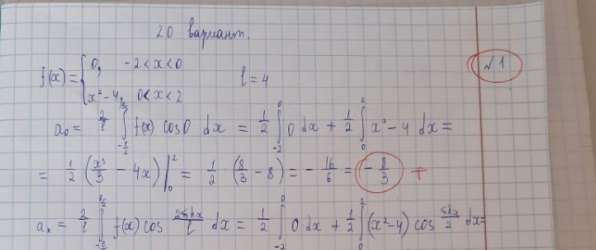 20 вариант.
№1
f(x) = { 0, -2 < x < 0
x² - 4, 0 < x < 2
l = 4
a₀ = 2/l ∫_{-l/2}^{l/2} f(x) cos0 dx = 1/2 ∫_{-2}^{0} 0 dx + 1/2 ∫_{0}^{2} x² - 4 dx =
= 1/2 (x³/3 - 4x) |₀² = 1/2 (8/3 - 8) = - 16/6 = - 8/3 +
aₙ = 2/l ∫_{-l/2}^{l/2} f(x) cos dx = 1/2 ∫_{-2}^{0} 0 dx + 1/2 ∫_{0}^{2} (x² - 4) cos dx =